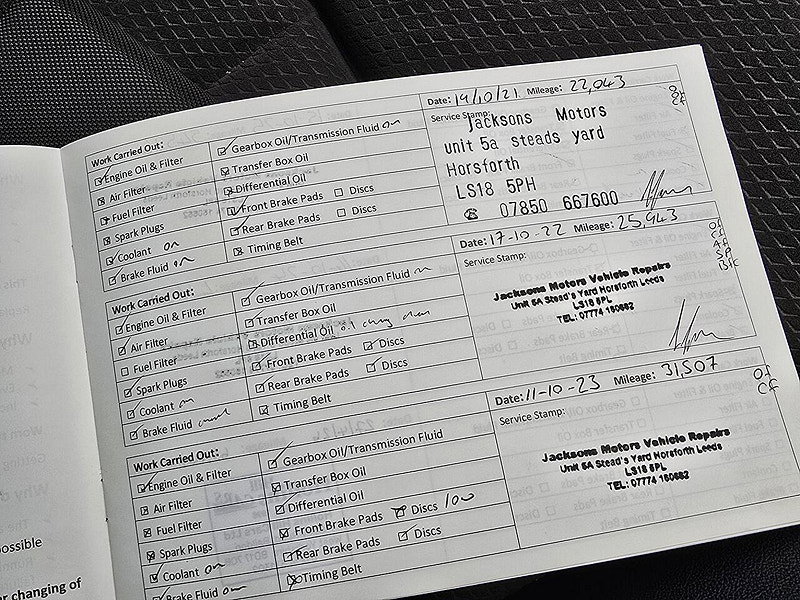 Date: 19/10/21 Mileage: 22,043
Work Carried Out:
Engine Oil & Filter
Air Filter
Fuel Filter
Spark Plugs
Coolant on
Brake Fluid on
Gearbox Oil/Transmission Fluid on
Transfer Box Oil
Differential Oil
Front Brake Pads Discs
Rear Brake Pads Discs
Timing Belt
Service Stamp:
Jacksons Motors
unit 5a steads yard
Horsforth
LS18 5PH
☎ 07850 667600
OF
CF
Date: 17-10-22 Mileage: 25,943
Work Carried Out:
Engine Oil & Filter
Air Filter
Fuel Filter
Spark Plugs
Coolant on
Brake Fluid
Gearbox Oil/Transmission Fluid on
Transfer Box Oil
Differential Oil oil
Front Brake Pads Discs
Rear Brake Pads Discs
Timing Belt
Service Stamp:
Jacksons Motors Vehicle Repairs
Unit 5A Stead's Yard Horsforth Leeds
LS18 5PL
TEL: 07774 160682
OF
CF
AF
SP
Date: 11-10-23 Mileage: 31,507
Work Carried Out:
Engine Oil & Filter
Air Filter
Fuel Filter
Spark Plugs
Coolant on
Brake Fluid on
Gearbox Oil/Transmission Fluid
Transfer Box Oil
Differential Oil
Front Brake Pads Discs
Rear Brake Pads Discs
Timing Belt
Service Stamp:
Jacksons Motors Vehicle Repairs
Unit 5A Stead's Yard Horsforth Leeds
LS18 5PL
TEL: 07774 160682
OF
CF
ossible
r changing of